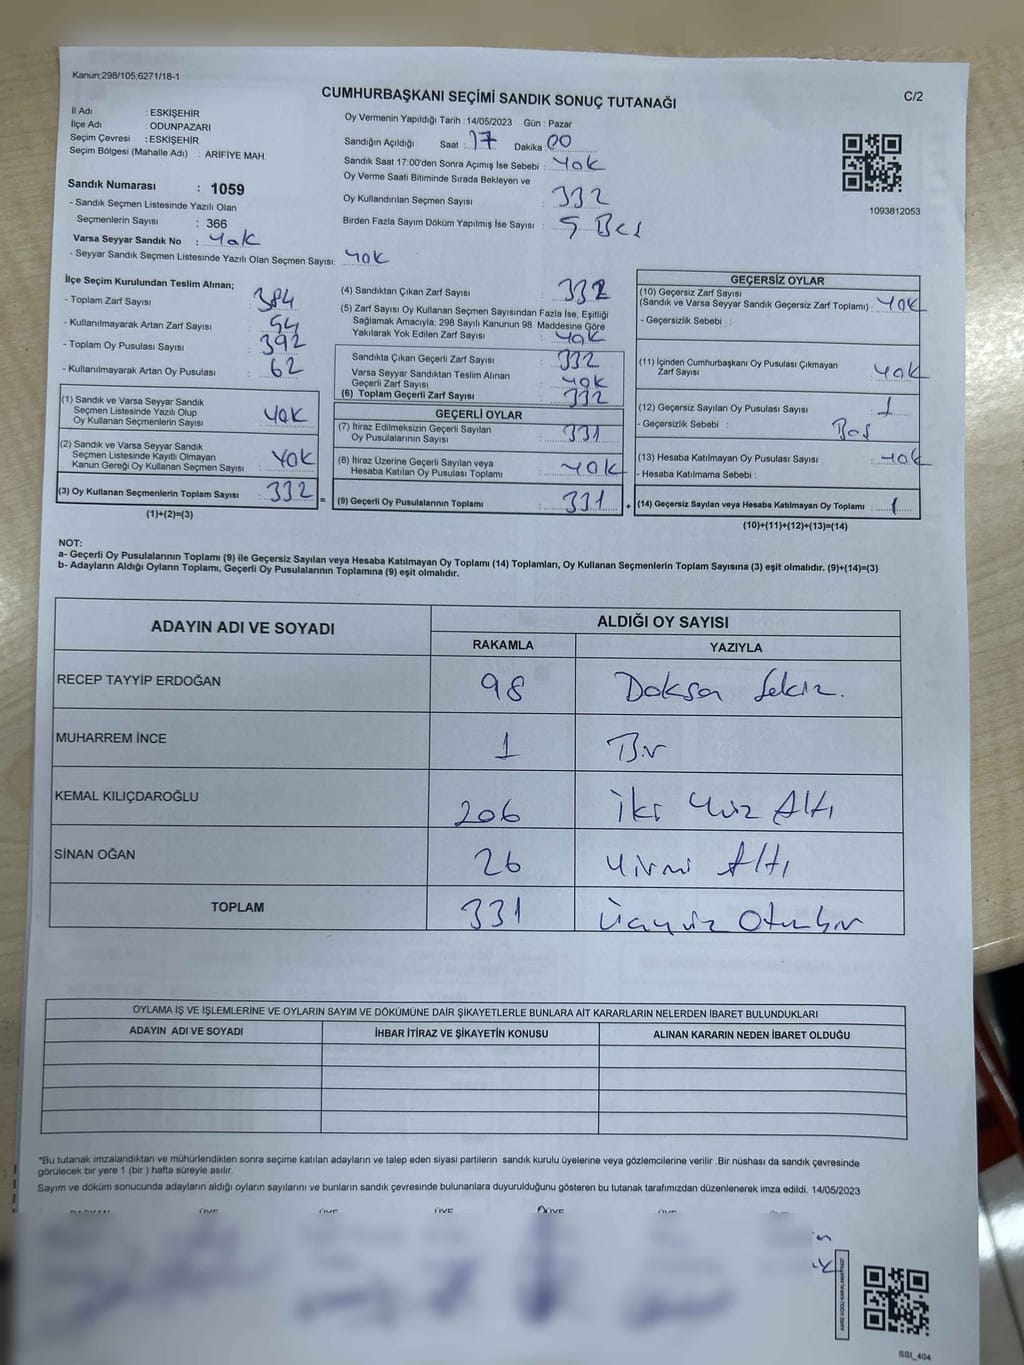 Kanun:298/105;6271/18-1
CUMHURBAŞKANI SEÇİMİ SANDIK SONUÇ TUTANAĞI
C/2
İl Adı : ESKİŞEHİR
İlçe Adı : ODUNPAZARI
Seçim Çevresi : ESKİŞEHİR
Seçim Bölgesi (Mahalle Adı) : ARİFİYE MAH.
Sandık Numarası : 1059
- Sandık Seçmen Listesinde Yazılı Olan
Seçmenlerin Sayısı : 366
Varsa Seyyar Sandık No : YOK
- Seyyar Sandık Seçmen Listesinde Yazılı Olan Seçmen Sayısı: YOK
Oy Vermenin Yapıldığı Tarih :14/05/2023 Gün : Pazar
Sandığın Açıldığı Saat : 17 Dakika : 00
Sandık Saat 17:00'den Sonra Açımış İse Sebebi : YOK
Oy Verme Saati Bitiminde Sırada Bekleyen ve
Oy Kullandırılan Seçmen Sayısı : 332
Birden Fazla Sayım Döküm Yapılmış İse Sayısı : 5 Beş
1093812053
İlçe Seçim Kurulundan Teslim Alınan;
- Toplam Zarf Sayısı : 384
- Kullanılmayarak Artan Zarf Sayısı : 54
- Toplam Oy Pusulası Sayısı : 392
- Kullanılmayarak Artan Oy Pusulası : 62
(1) Sandık ve Varsa Seyyar Sandık
Seçmen Listesinde Yazılı Olup
Oy Kullanan Seçmenlerin Sayısı : YOK
(2) Sandık ve Varsa Seyyar Sandık
Seçmen Listesinde Kayıtlı Olmayan
Kanun Gereği Oy Kullanan Seçmen Sayısı : YOK
(3) Oy Kullanan Seçmenlerin Toplam Sayısı : 332 =
(1)+(2)=(3)
(4) Sandıktan Çıkan Zarf Sayısı : 332
(5) Zarf Sayısı Oy Kullanan Seçmen Sayısından Fazla İse, Eşitliği
Sağlamak Amacıyla; 298 Sayılı Kanunun 98. Maddesine Göre
Yakılarak Yok Edilen Zarf Sayısı : YOK
Sandıkta Çıkan Geçerli Zarf Sayısı : 332
Varsa Seyyar Sandıktan Teslim Alınan
Geçerli Zarf Sayısı : YOK
(6) Toplam Geçerli Zarf Sayısı : 332
GEÇERLİ OYLAR
(7) İtiraz Edilmeksizin Geçerli Sayılan
Oy Pusulalarının Sayısı : 331
(8) İtiraz Üzerine Geçerli Sayılan veya
Hesaba Katılan Oy Pusulası Toplamı : YOK
(9) Geçerli Oy Pusulalarının Toplamı : 331 +
GEÇERSİZ OYLAR
(10) Geçersiz Zarf Sayısı
(Sandık ve Varsa Seyyar Sandık Geçersiz Zarf Toplamı) : YOK
- Geçersizlik Sebebi :
(11) İçinden Cumhurbaşkanı Oy Pusulası Çıkmayan
Zarf Sayısı : YOK
(12) Geçersiz Sayılan Oy Pusulası Sayısı : 1
- Geçersizlik Sebebi : Boş
(13) Hesaba Katılmayan Oy Pusulası Sayısı : YOK
- Hesaba Katılmama Sebebi :
(14) Geçersiz Sayılan veya Hesaba Katılmayan Oy Toplamı : 1
(10)+(11)+(12)+(13)=(14)
NOT:
a- Geçerli Oy Pusulalarının Toplamı (9) ile Geçersiz Sayılan veya Hesaba Katılmayan Oy Toplamı (14) Toplamları, Oy Kullanan Seçmenlerin Toplam Sayısına (3) eşit olmalıdır. (9)+(14)=(3)
b- Adayların Aldığı Oyların Toplamı, Geçerli Oy Pusulalarının Toplamına (9) eşit olmalıdır.
ADAYIN ADI VE SOYADI
ALDIĞI OY SAYISI
RAKAMLA YAZIYLA
RECEP TAYYİP ERDOĞAN 98 Doksan Sekiz.
MUHARREM İNCE 1 Bir
KEMAL KILIÇDAROĞLU 206 İki Yüz Altı
SİNAN OĞAN 26 Yirmi Altı
TOPLAM 331 Üçyüz Otuzbir
OYLAMA İŞ VE İŞLEMLERİNE VE OYLARIN SAYIM VE DÖKÜMÜNE DAİR ŞİKAYETLERLE BUNLARA AİT KARARLARIN NELERDEN İBARET BULUNDUKLARI
ADAYIN ADI VE SOYADI İHBAR İTİRAZ VE ŞİKAYETİN KONUSU ALINAN KARARIN NEDEN İBARET OLDUĞU
*Bu tutanak imzalandıktan ve mühürlendikten sonra seçime katılan adayların ve talep eden siyasi partilerin sandık kurulu üyelerine veya gözlemcilerine verilir .Bir nüshası da sandık çevresinde
görülecek bir yere 1 (bir ) hafta süreyle asılır.
Sayım ve döküm sonucunda adayların aldığı oyların sayılarını ve bunların sandık çevresinde bulunanlara duyurulduğunu gösteren bu tutanak tarafımızdan düzenlenerek imza edildi. 14/05/2023
BAŞKAN ÜYE ÜYE ÜYE ÜYE ÜYE ÜYE
SSI_404